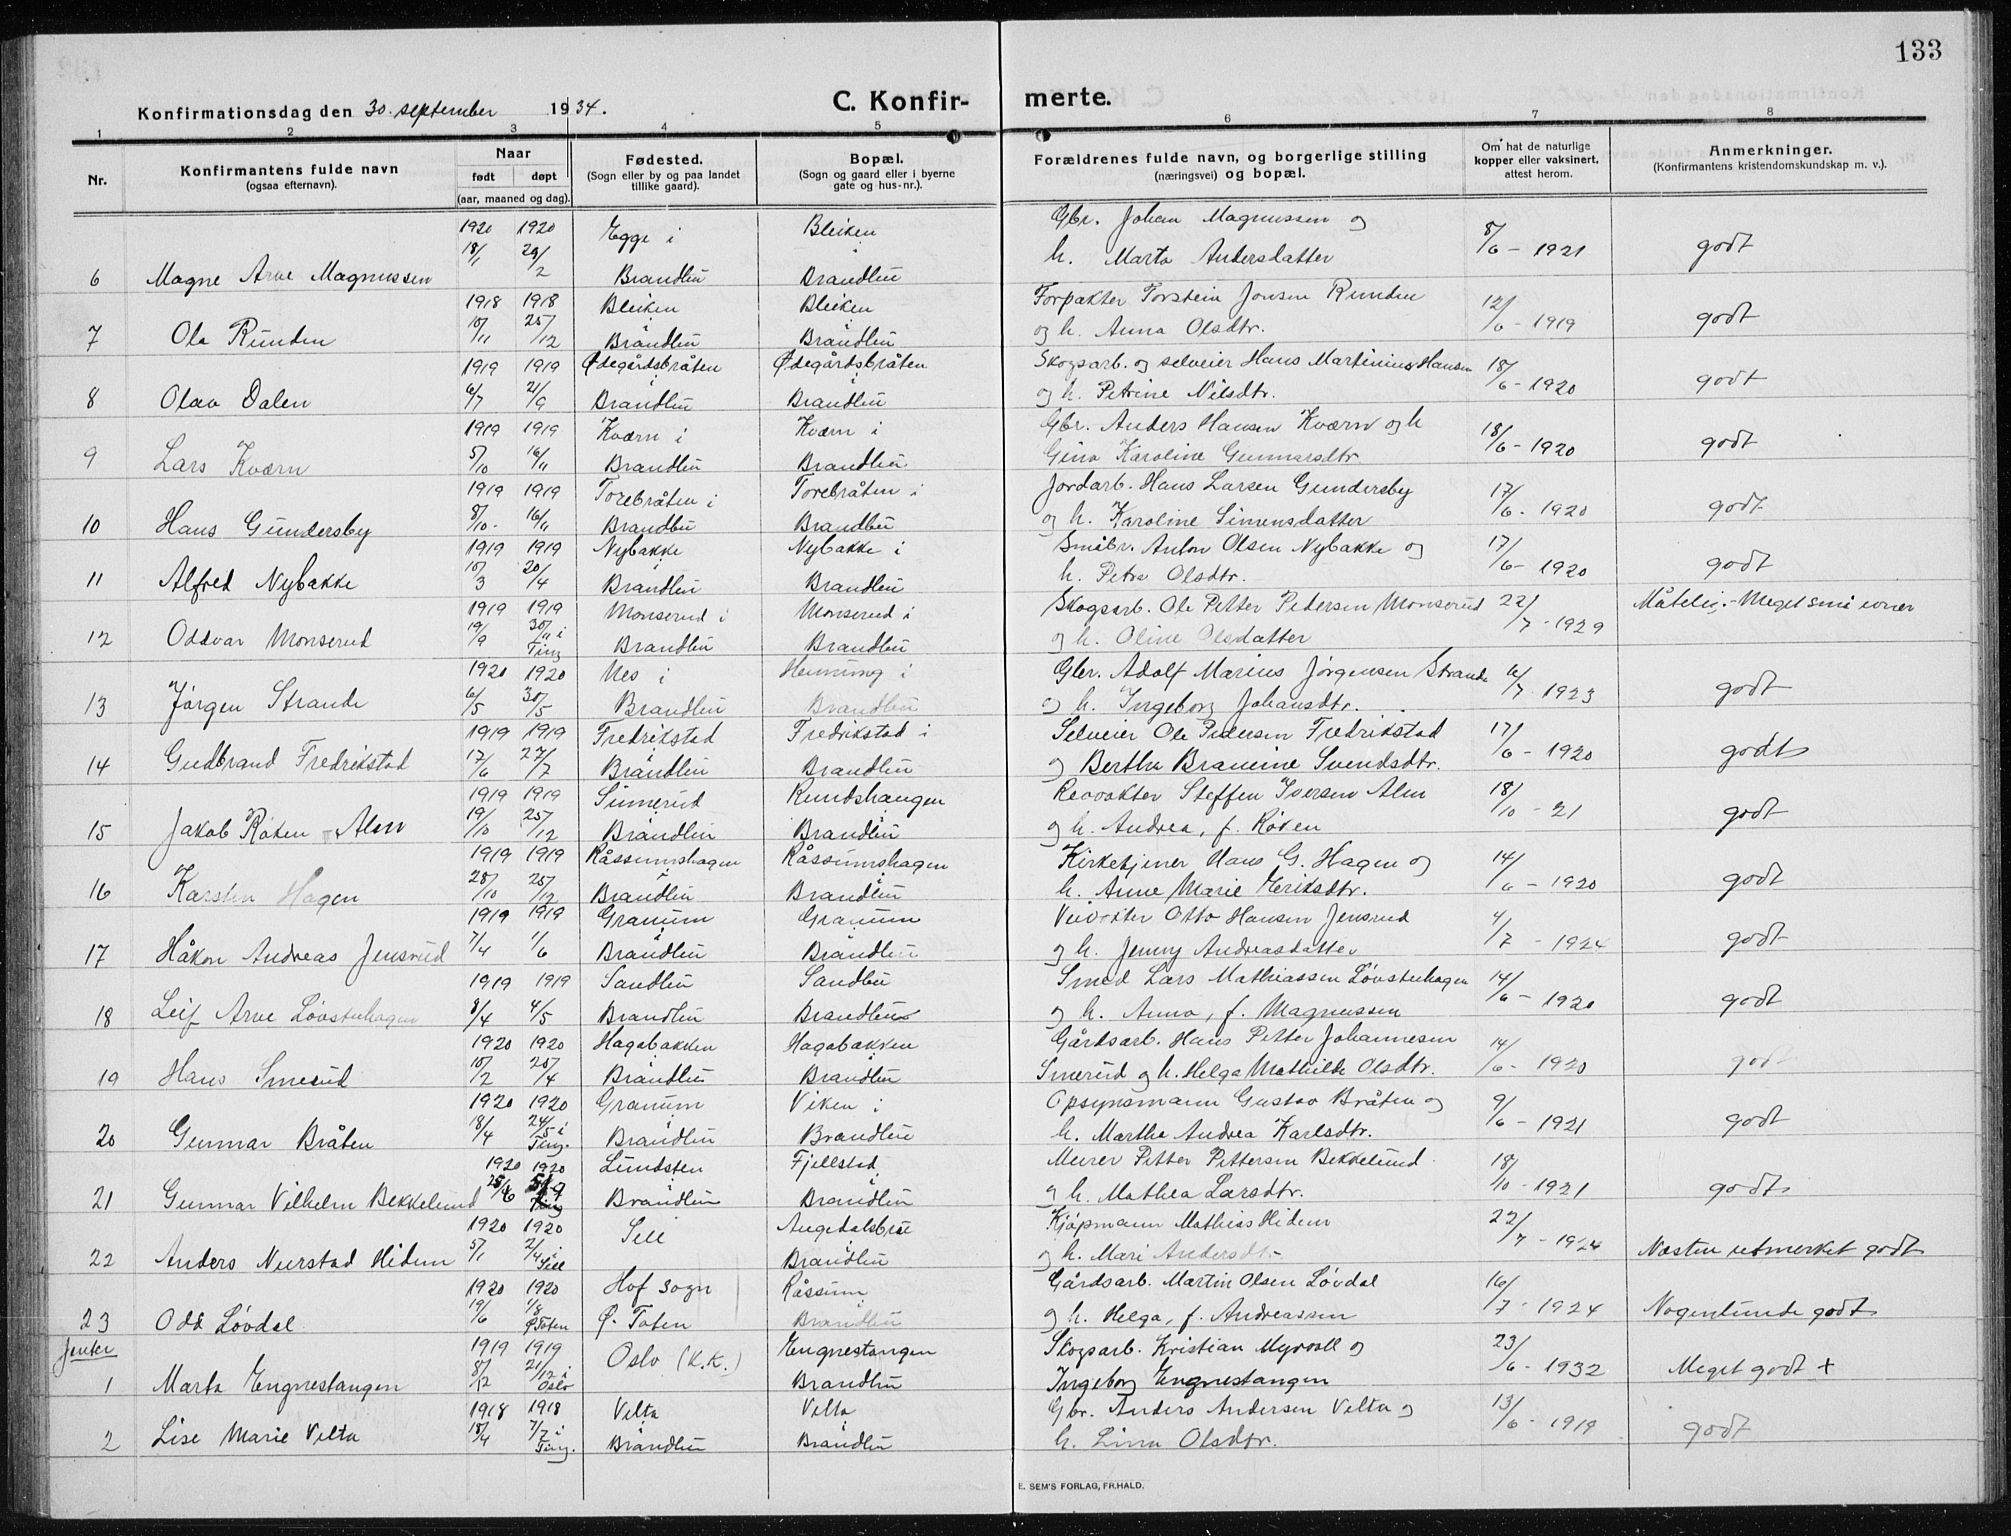 133
Konfirmationsdag den 30. september 1934.
C. Konfir-
merte.
1 2 3 4 5 6 7 8
Nr.
Konfirmantens fulde navn
(ogsaa efternavn).
Naar
født døpt
(aar, maaned og dag).
Fødested.
(Sogn eller by og paa landet
tillike gaard).
Bopæl.
(Sogn og gaard eller i byerne
gate og hus-nr.).
Forældrenes fulde navn, og borgerlige stilling
(næringsvei) og bopæl.
Om hat de naturlige
kopper eller vaksinert,
attest herom.
Anmerkninger.
(Konfirmantens kristendomskundskap m. v.).
1920 1920 Egge i Bleiken Gbr. Johan Magnussen og
6 Magne Arve Magnussen 18/1 29/2 Brandbu Brandbu h. Marta Andersdatter 8/6 - 1921 godt
1918 1918 Bleiken Bleiken Forpakter Torstein Jonsen Runden
7 Ola Runden 10/11 25/12 i Brandbu i Brandbu og h. Anna Olsdtr. 12/6 - 1919 godt
1919 1919 Ødegårdsbråten Ødegårdsbråten Skogsarb. og selveier Hans Martinius Hansen
8 Olav Dalen 6/7 21/9 i Brandbu i Brandbu og h. Petrine Nilsdtr. 18/6 - 1920 godt
1919 1919 Kværn i Kværn i Gbr. Anders Hansen Kværn og h
9 Lars Kværn 5/10 16/11 Brandbu Brandbu Gina Karoline Gunnarsdtr. 18/6 - 1920 godt
1919 1919 Torebråten i Torebråten i Jordarb. Hans Larsen Gundersby
10 Hans Gundersby 8/10 - 16/11 Brandbu Brandbu og h. Karoline Simensdatter 17/6 - 1920 godt
1919 1919 Nybakke Nybakke i Småbr. Anton Olsen Nybakke og
11 Alfred Nybakke 10/3 20/4 i Brandbu Brandbu h. Petra Olsdtr. 17/6 - 1920 godt
1919 1919 Monserud i Monserud i Skogsarb. Ole Petter Pedersen Monserud Måtelig. - Meget små evner
12 Oddvar Monserud 19/9 30/11 i Ting Brandbu Brandbu og h. Oline Olsdatter 22/7 - 1929
1920 1920 Nes i Henning i Gbr. Adolf Marius Jørgensen Strande
13 Jørgen Strande 6/5 30/5 Brandbu Brandbu og h. Ingeborg Johansdtr. 6/7 - 1923 godt
1919 1919 Fredrikstad Fredrikstad i Selveier Ole Pedersen Fredrikstad
14 Gudbrand Fredrikstad 17/6 27/7 i Brandbu Brandbu og Bertha Bravine Svendsdtr. 17/6 - 1920 godt
1919 1919 Sinnerud Rundshaugen Steffen Iversen Alm
15 Jakob Røken Alm 19/10 25/12 i Brandbu i Brandbu og h. Andrea, f. Røken 18/10 - 21 godt
1919 1919 Råssumshagen Råssumshagen Kirketjener Hans G. Hagen og
16 Karsten Hagen 28/10 25/12 i Brandbu i Brandbu h. Anne Marie Eriksdtr. 14/6 - 1920 godt
1919 1919 Granum Granum Veivokter Otto Hansen Jensrud
17 Håkon Andreas Jensrud 7/4 1/6 i Brandbu i Brandbu og h. Jenny Andreasdatter 4/7 - 1924 godt
1919 1919 Sandbu Sandbu Smed Lars Mathiassen Løvstuhagen
18 Leif Arve Løvstuhagen 8/4 4/5 Brandbu Brandbu og h. Anna, f. Magnussen 14/6 - 1920 godt
1920 1920 Hagabakken Hagabakken Gårdsarb. Hans Petter Johannesen
19 Hans Smerud 10/2 20/4 i Brandbu Brandbu Smerud og h. Helga Mathilde Olsdtr. 14/6 - 1920 godt
1920 1920 Granum Viken i Opsynsmann Gustav Bråten og
20 Gunnar Bråten 18/4 24/5 i Ting. i Brandbu Brandbu h. Marthe Andrea Karlsdtr. 9/6 - 1921 godt
1920 1920 Lundsten Fjellstad Murer Petter Pettersen Bekkelund
21 Gunnar Vilhelm Bekkelund Ting i Brandbu i Brandbu og h. Mathea Larsdtr. 18/10 - 1921 godt
1920 1920 Sell Augedalsbro Kjøpmann Mathias Hidem
22 Anders Nerstad Hidem 5/1 2/4 i Sell i Brandbu og h. Mari Andersdtr 22/7 - 1924 Næsten utmerket godt
1920 1920 Hof sogn Råssum Gårdsarb. Martin Olsen Løvdal
23 Odd Løvdal 19/6 1/8 Ø Toten Ø. Toten i Brandbu og h. Helga, f. Andreassen 16/7 - 1924 Nogenlunde godt
Jenter 1919 1919 Oslo (K.K.) Engnestangen Skogsarb. Kristian Myrvoll og
1 Marta Engnestangen 8/12 21/12 i Oslo Brandbu Ingeborg Engnestangen 23/6 - 1932 Meget godt +
1918 1918 Velta Velta Gbr. Anders Andersen Velta og
2 Lise Marie Velta 18/4 7/7 i Ting. i Brandbu i Brandbu h. Lina Olsdtr. 13/6 - 1919 godt
E. SEM'S FORLAG, FR.HALD.